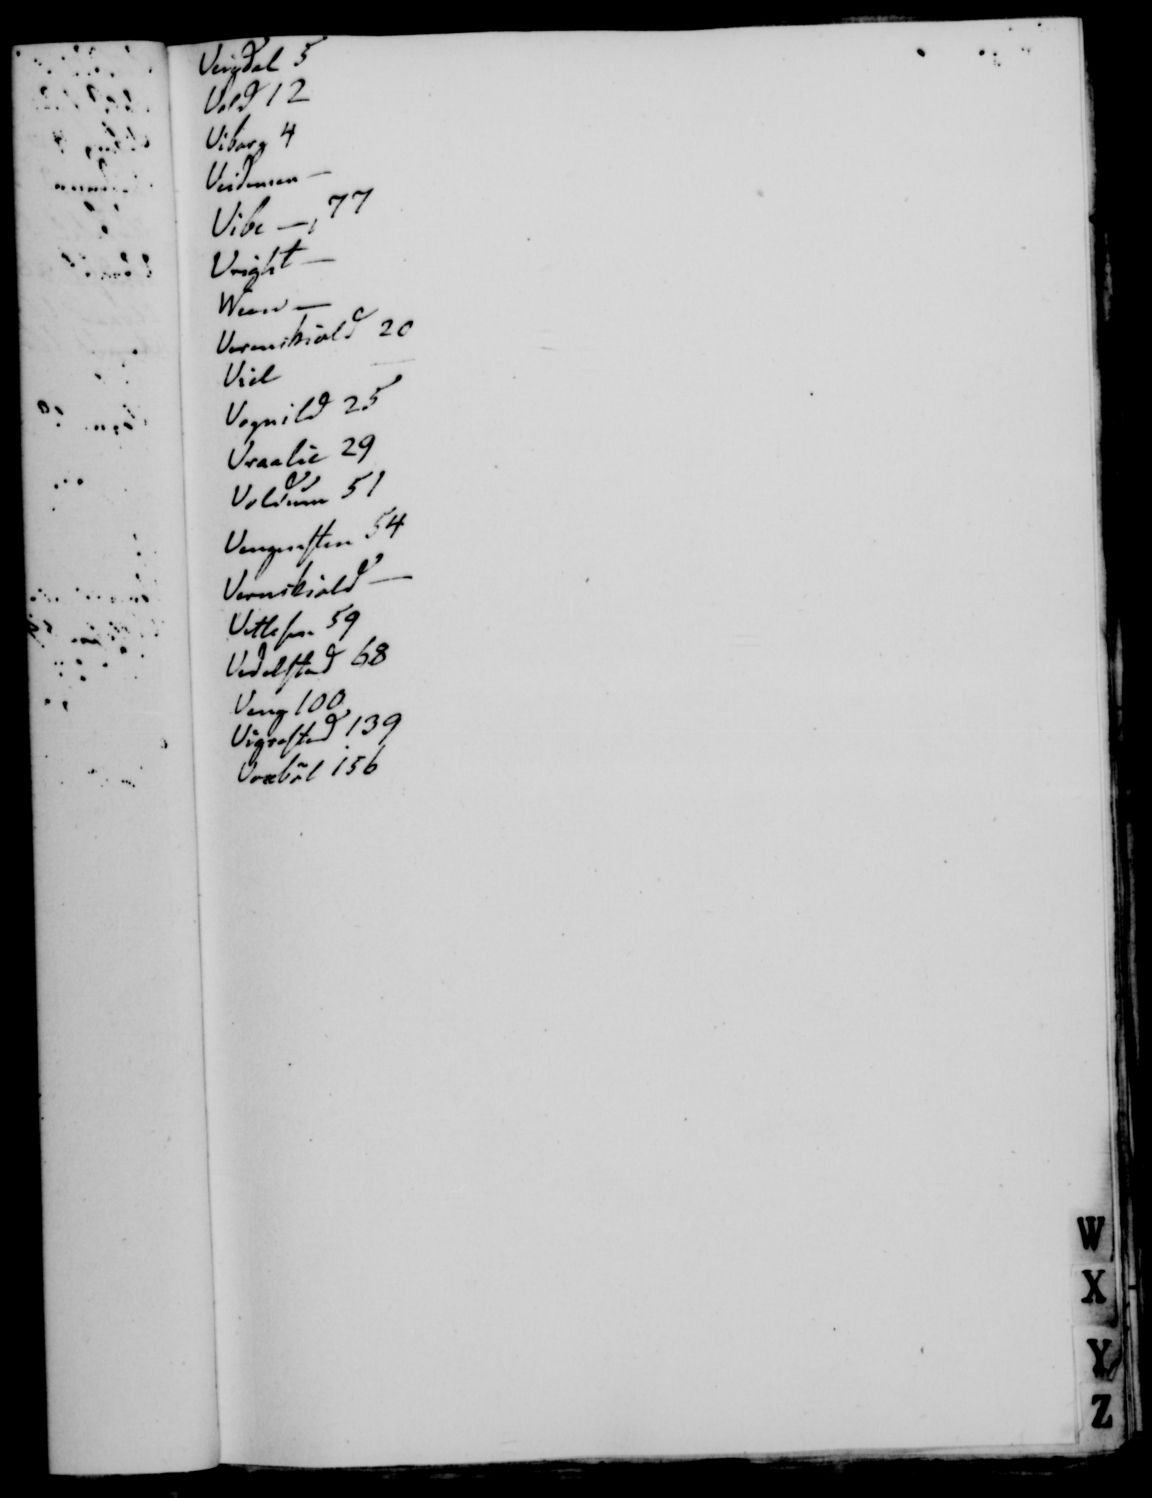 Verdal 5
Vold 12
Viborg 4
Veideman —
Vibe —, 77
Vright —
Ween —
Verenskiold 20
Viel
Vognild 25
Vraalie 29
Voldum 51
Vengensten 54
Vernskiold —
Vettesen 59
Vedelsted 68
Veng 100
Vigersted 139
Voxböl 156
W
X
Y
Z